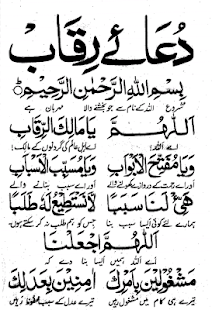 دُعائے رِقاب
بِسْمِ اللهِ الرَّحْمٰنِ الرَّحِيْمِ
شروع اللہ کے نام سے جو بخشنے والا مہربان ہے
اَللّٰهُمَّ يَا مَالِكَ الرِّقَابِ
اے اللہ! اے اہل عالم کی گردنوں کے مالک!
وَيَا مُفَتِّحَ الْاَبْوَابِ وَيَا مُسَبِّبَ الْاَسْبَابِ
اور اے کھولنے والے اور اے سبب بنانے والے
هَيِّئْ لَنَا سَبَبًا لَا نَسْتَطِيْعُ لَهٗ طَلَبًا
ہمارے لئے کوئی ایسا سبب بنا جس کو ہم طلب نہ کر سکتے ہوں
اَللّٰهُمَّ اجْعَلْنَا
اے اللہ ہمیں ایسا بنا دے کہ
مَشْغُوْلِيْنَ بِاَمْرِكَ اٰمِنِيْنَ بِعَدْلِكَ
تیرے ہی کام میں مشغول رہیں تیرے عدل کے سبب محفوظ رہیں